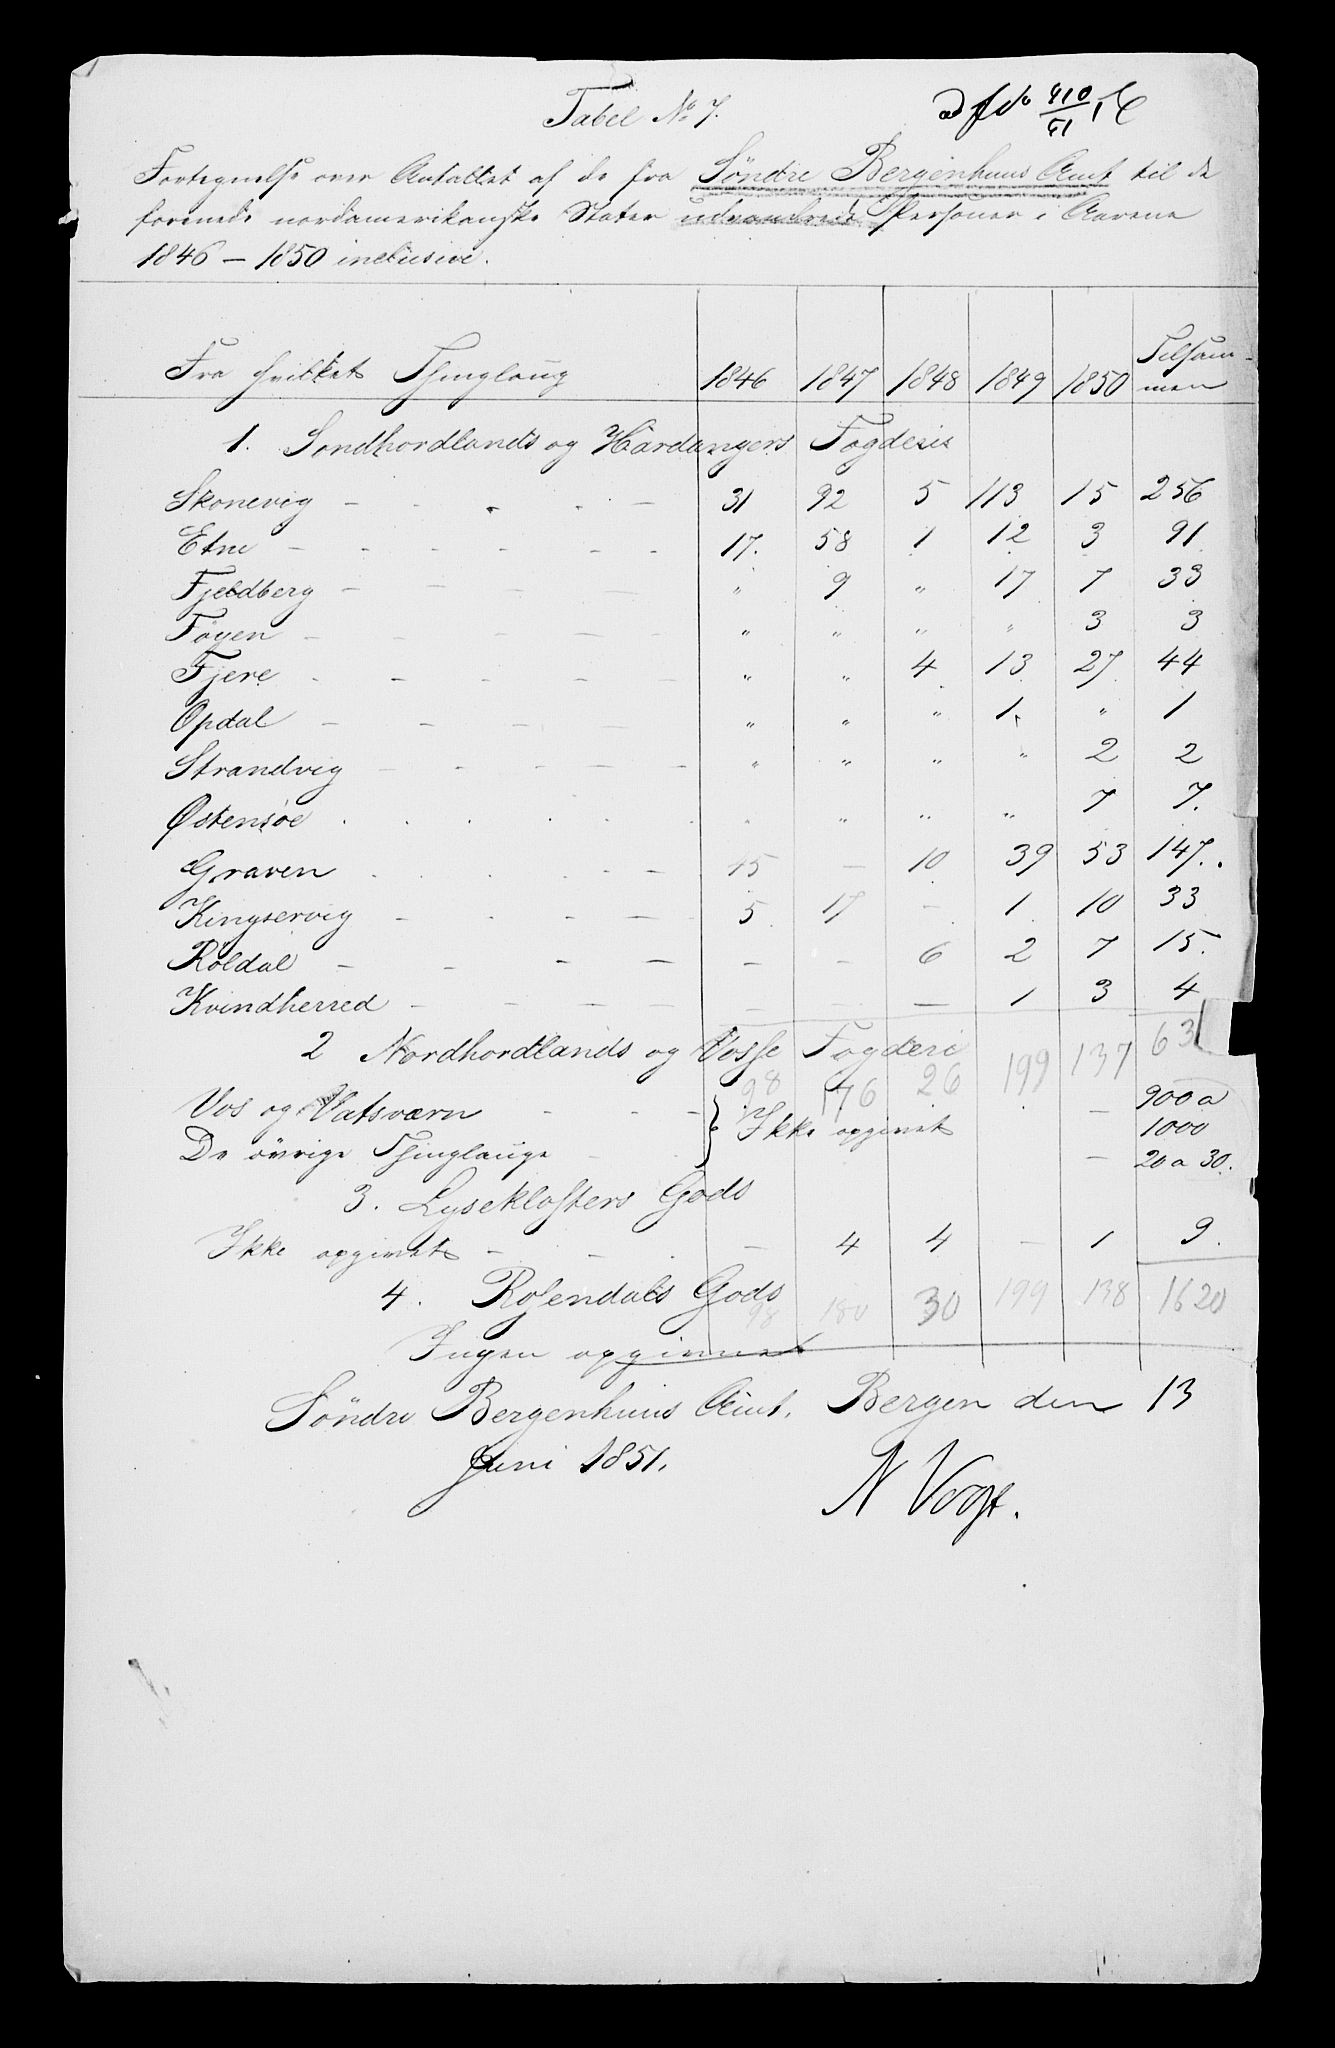 Tabel No 7.
ad J No 410/51 C
Fortegnelse over Antallet af de fra Söndre Bergenhuus Amt til de
forenede nordamerikanske Stater udvandrede Personer i Aarene
1846 – 1850 inclusive.
Fra hvilket Thinglaug 1846 1847 1848 1849 1850 Tilsam-
men
1. Sondhordlands og Hardangers Fogderie
Skonevig - - - - - 31 92 5 113 15 256
Etne - - - - - - 17. 58 1 12 3 91
Fjeldberg - - - - " 9 " 17 7 33
Föyen - - - - " " " " 3 3
Fjere - - - - - " " 4 13 27 44
Opdal - - - - " " " 1. " 1
Strandvig - - - - - " " " " 2 2
Østensøe . . . . . . " " " " 7 7.
Graven . . . - - - 45 - 10 39 53 147.
Kingservig - - - - 5 17 - 1 10 33
Röldal - - - - - - 6 2 7 15.
Kvindherred - - - - - - - 1 3 4
2 Nordhordlands og Vosse Fogderi
98 176 26 199 137 631
Vos og Vatsværn - - - } Ikke opgivet - 900 a
1000
De övrige Thinglauge - - - 20 a 30.
3. Lyseklosters Gods
Ikke opgivet - - . - 4 4 - 1 9.
4. Rosendals Gods
98 180 30 199 138 1620
Ingen opgivet
Söndre Bergenhuus Amt. Bergen den 13
Juni 1851.
N Vogt.